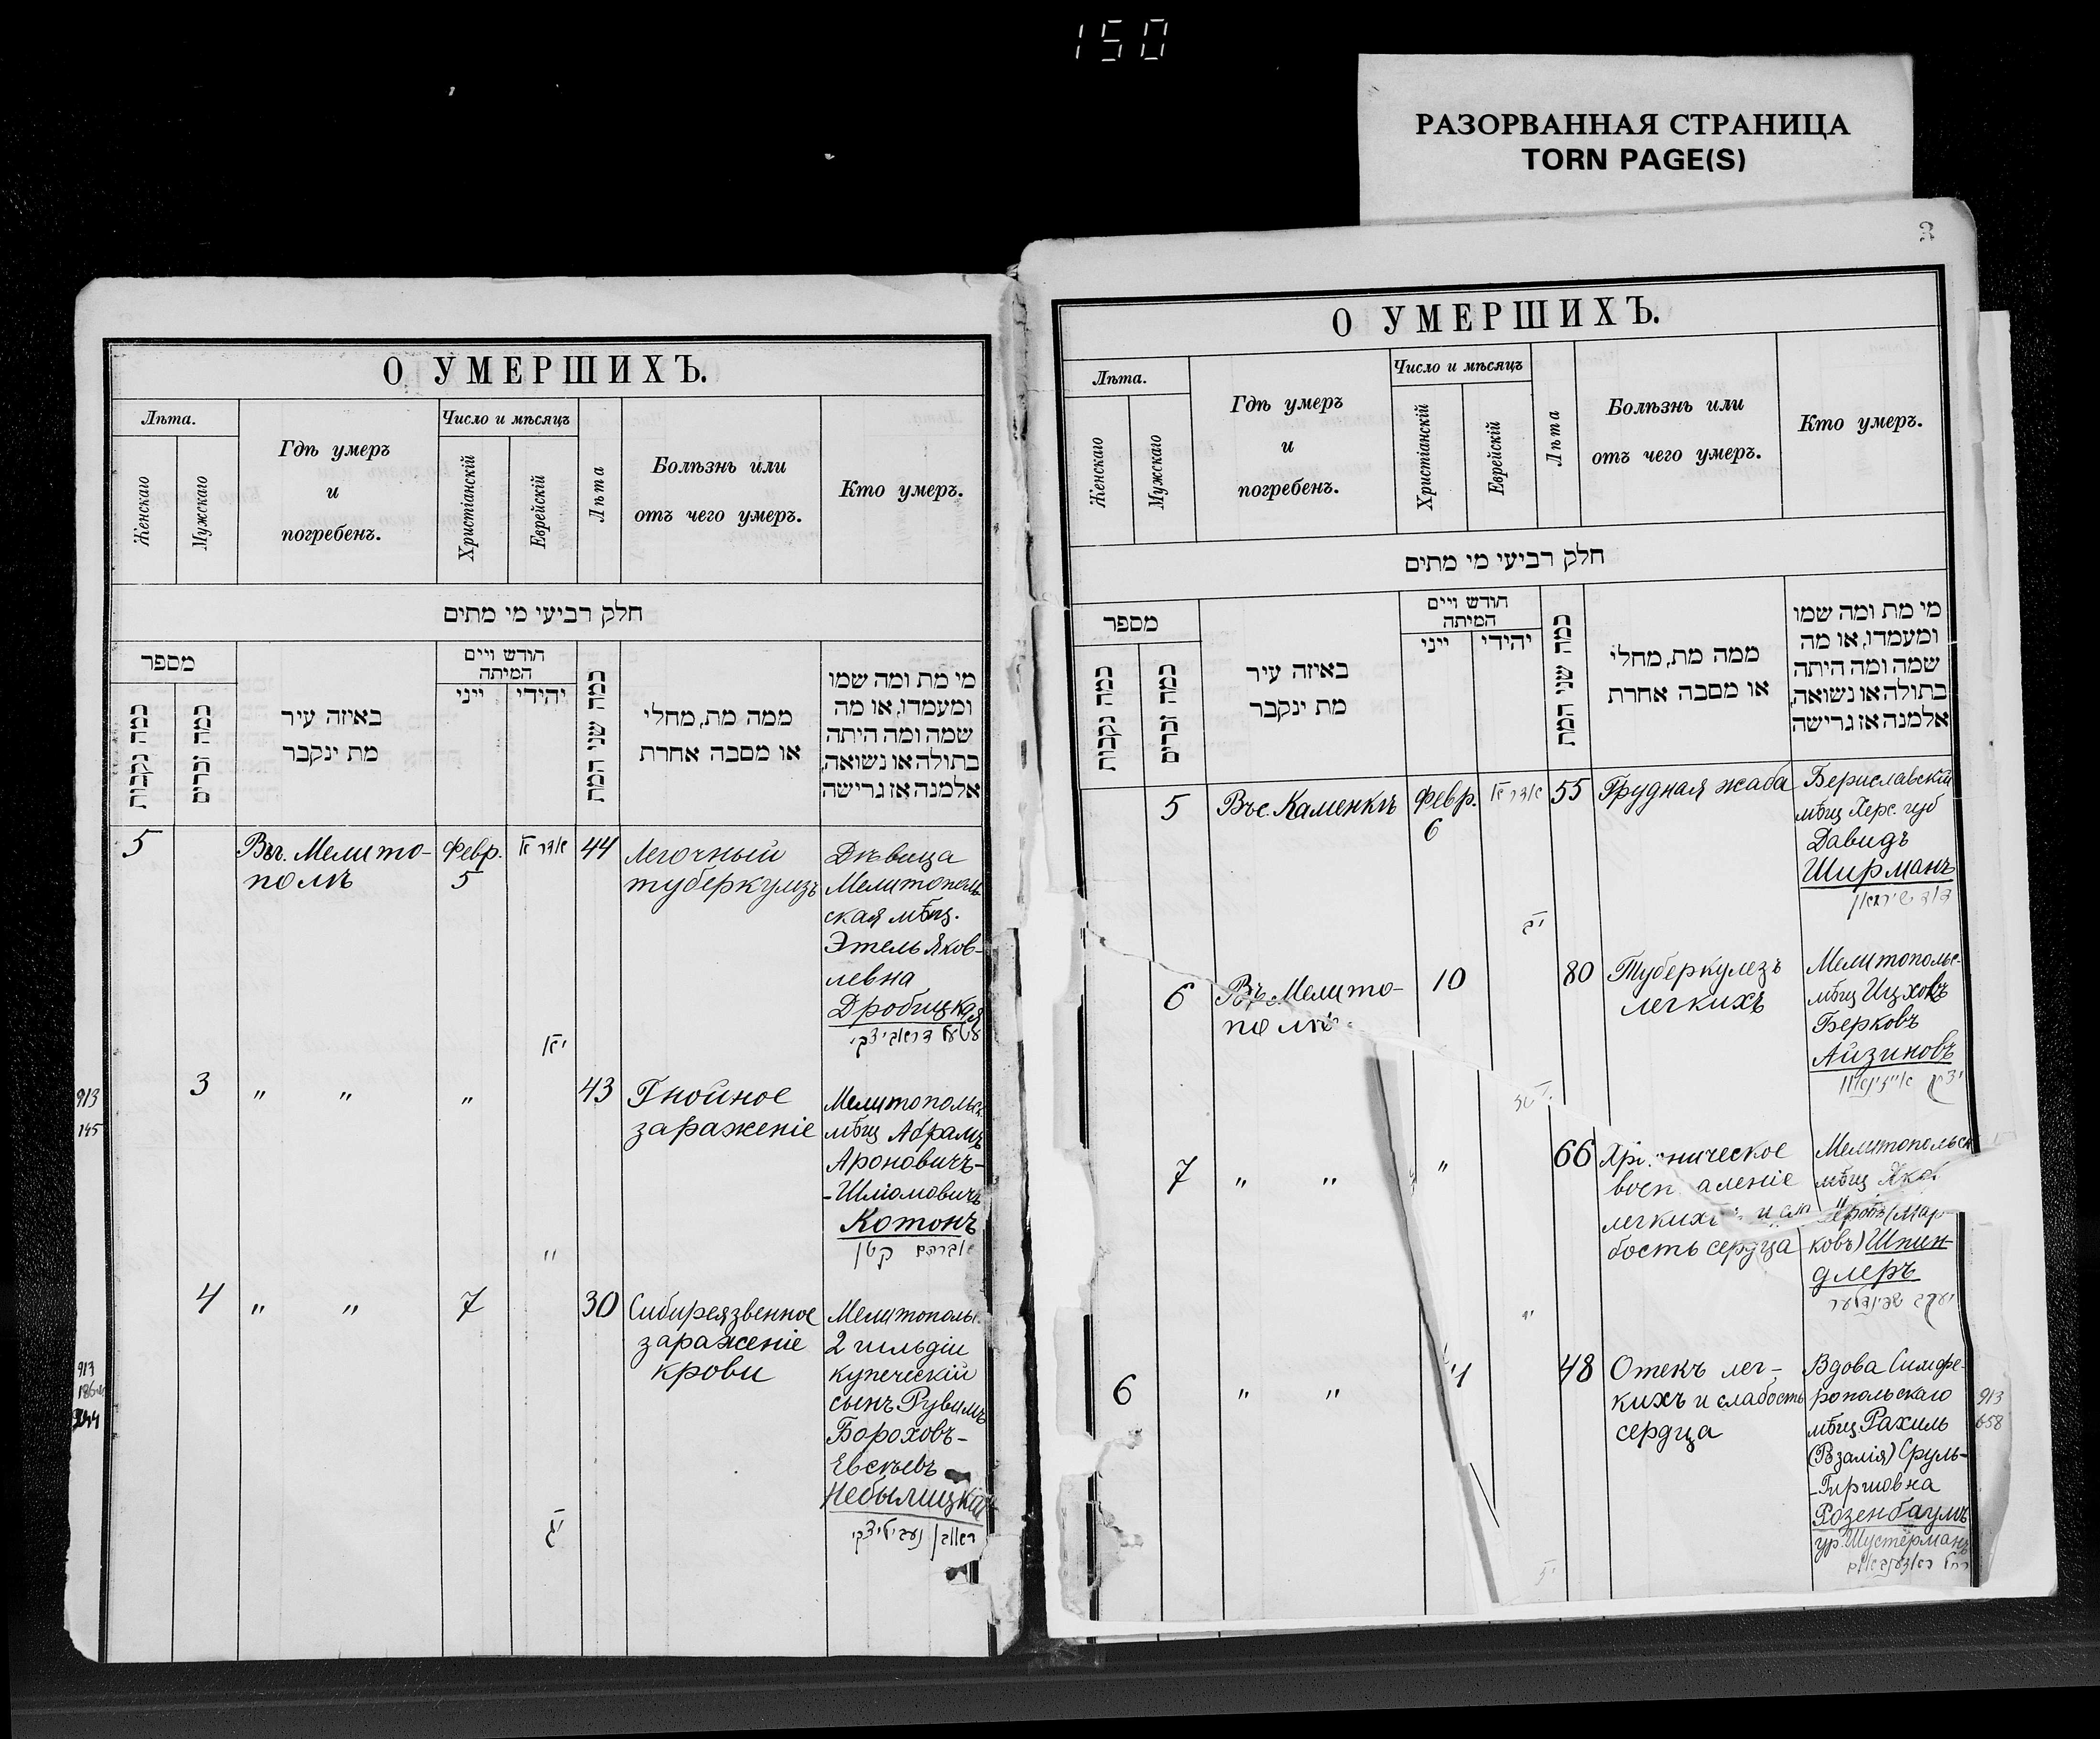 150
РАЗОРВАННАЯ СТРАНИЦА
TORN PAGE(S)
О УМЕРШИХЪ.
Лѣта.
Женскаго
Мужскаго
Гдѣ умеръ
и
погребенъ.
Число и мѣсяцъ
Христіанскій
Еврейскій
Лѣта
Болѣзнь или
отъ чего умеръ.
Кто умеръ.
חלק רביעי מי מתים
מספר
כמה נקבות
כמה זכרים
באיזה עיר
מת ינקבר
חודש ויים
המיתה
ייני
יהידי
כמה שני המת
ממה מת, מחלי
או מסבה אחרת
מי מת ומה שמו
ומעמדו, או מה
שמה ומה היתה
בתולה או נשואה,
אלמנה אז גרישה
5
Въ г. Мелито-
полѣ
Февр.
5
אדר א
יא
44
Легочный
туберкулезъ
Дѣвица
Мелитополь
ская мѣщ.
Этель Яков-
левна
Дробицкая
עטעל דראביצקי
913
145
3
" "
"
"
43
Гнойное
зараженіе
Мелитопольск.
мѣщ Абрамъ
Ароновичъ-
-Шліомовичъ
Котонъ
אברהם קטן
913
244
4
" "
7
יג
30
Сибиреязвенное
зараженіе
крови
Мелитопольс.
2 гильдіи
купеческій
сынъ Рувимъ
Бороховъ-
Евсѣевъ
Небылицкій
ראובן נעביליצקי
3
О УМЕРШИХЪ.
Лѣта.
Женскаго
Мужскаго
Гдѣ умеръ
и
погребенъ.
Число и мѣсяцъ
Христіанскій
Еврейскій
Лѣта
Болѣзнь или
отъ чего умеръ.
Кто умеръ.
חלק רביעי מי מתים
מספר
כמה נקבות
כמה זכרים
באיזה עיר
מת ינקבר
חודש ויים
המיתה
ייני
יהידי
כמה שני המת
ממה מת, מחלי
או מסבה אחרת
מי מת ומה שמו
ומעמדו, או מה
שמה ומה היתה
בתולה או נשואה,
אלמנה אז גרישה
5
Въ с. Каменкѣ
Февр.
6
אדר א
יב
55
Грудная жаба
Бериславскій
мѣщ Херс. губ
Давидъ
Ширманъ
דוד שירמאן
6
Въ г. Мелито-
полѣ
10
80
Туберкулезъ
легкихъ
Мелитопольс.
мѣщ Ицхокъ
Берковъ
Айзиновъ
יצחק אייזינאוו
7
" "
"
"
66
Хроническое
воспаленіе
легкихъ и сла
бость сердца
Мелитопольск
мѣщ Яко
(Мар
ковъ) Шпин-
длеръ
יעקב שפינדלער
6
" "
48
Отекъ лег-
кихъ и слабость
сердца
Вдова Симфе-
ропольскаго
мѣщ Рахиль
(Розалія) Сруль-
-Гиршовна
Розенбаумъ
ур. Шустерманъ
רחל ראזענבאום
913
658